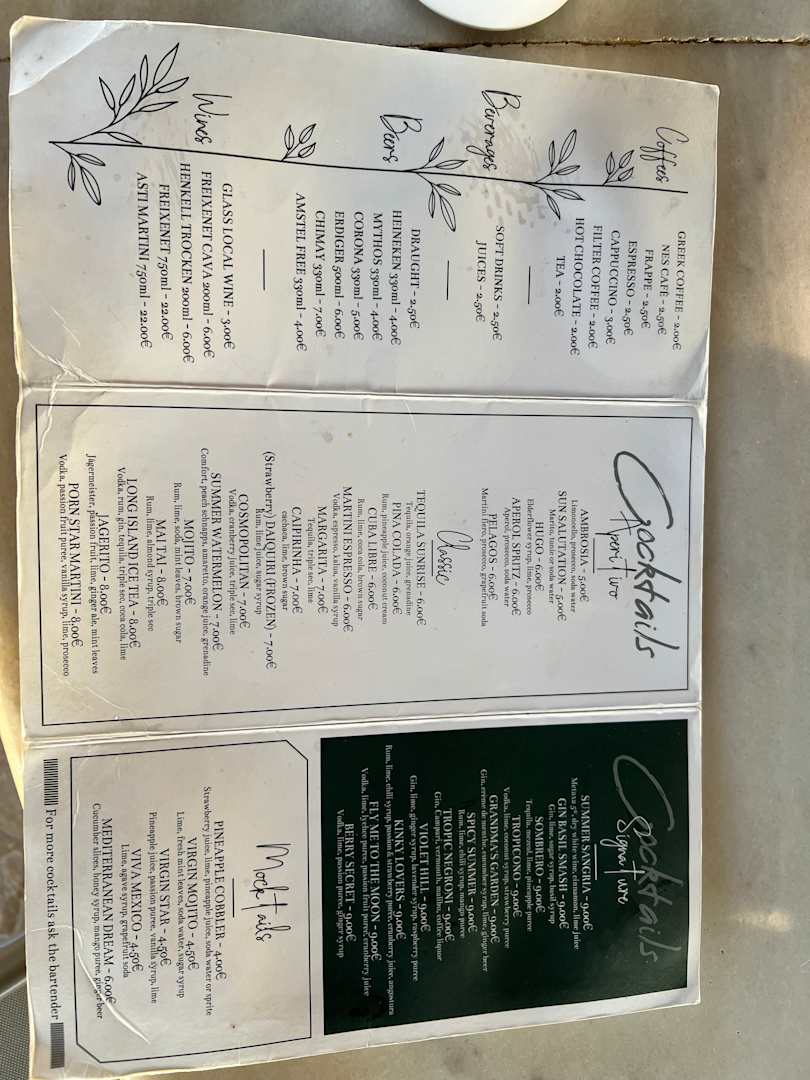 Coffees
GREEK COFFEE - 2.00€
NES CAFÈ - 2.50€
FRAPPE - 2.50€
ESPRESSO - 2.50€
CAPPUCCINO - 3.00€
FILTER COFFEE - 2.00€
HOT CHOCOLATE - 2.00€
TEA - 2.00€
Beverages
SOFT DRINKS - 2.50€
JUICES - 2.50€
Beers
DRAUGHT - 2.50€
HEINEKEN 330ml - 4.00€
MYTHOS 330ml - 4.00€
CORONA 330ml - 5.00€
ERDIGER 500ml - 6.00€
CHIMAY 330ml - 7.00€
AMSTEL FREE 330ml - 4.00€
Wines
GLASS LOCAL WINE - 3.00€
FREIXENET CAVA 200ml - 6.00€
HENKELL TROCKEN 200ml - 6.00€
FREIXENET 750ml - 22.00€
ASTI MARTINI 750ml - 22.00€
Cocktails
Aperitivo
AMBROSIA - 5.00€
Limoncello, prosecco, soda water
SUN SALUTATION - 5.00€
Martito, tonic or soda water
HUGO - 6.00€
Elderflower syrup, lime, prosecco
APEROL SPRITZ - 6.00€
Aperol, prosecco, soda water
PELAGOS - 6.00€
Martini fiero, prosecco, grapefruit soda
Classic
TEQUILA SUNRISE - 6.00€
Tequila, orange juice, grenadine
PINA COLADA - 6.00€
Rum, pineapple juice, coconut cream
CUBA LIBRE - 6.00€
Rum, lime, coca cola, brown sugar
MARTINI ESPRESSO - 6.00€
Vodka, espresso, kalua, vanilla syrup
MARGARITA - 7.00€
Tequila, triple sec, lime
CAIPIRINHA - 7.00€
cachaca, lime, brown sugar
(Strawberry) DAIQUIRI (FROZEN) - 7.00€
Rum, lime juice, sugar syrup
COSMOPOLITAN - 7.00€
Vodka, cranberry juice, triple sec, lime
SUMMER WATERMELON - 7.00€
Comfort, peach schnapps, amaretto, orange juice, grenadine
MOJITO - 7.00€
Rum, lime, soda, mint leaves, brown sugar
MAI TAI - 8.00€
Rum, lime, almond syrup, triple sec
LONG ISLAND ICE TEA - 8.00€
Vodka, rum, gin, tequila, triple sec, coca cola, lime
JAGERITO - 8.00€
Jägermeister, passion fruit, lime, ginger ale, mint leaves
PORN STAR MARTINI - 8.00€
Vodka, passion fruit puree, vanilla syrup, lime, prosecco
Cocktails
Signature
SUMMER SANGRIA - 9.00€
Metaxa 5*, dry white wine, cinnamon, lime juice
GIN BASIL SMASH - 9.00€
Gin, lime, sugar syrup, basil syrup
SOMBRERO - 9.00€
Tequila, mezcal, lime, pineapple puree
TROPICONO - 9.00€
Vodka, lime, coconut syrup, strawberry puree
GRANDMA'S GARDEN - 9.00€
Gin, crème de menthe, cucumber syrup, lime, ginger beer
SPICY SUMMER - 9.00€
Rum, lime, chili syrup, mango puree
TROPIC NEGRONI - 9.00€
Gin, Campari, vermouth, malibu, coffee liquor
VIOLET HILL - 9.00€
Gin, lime, ginger syrup, lavender syrup, raspberry puree
KINKY LOVERS - 9.00€
Rum, lime, chili syrup, passion & strawberry puree, cranberry juice, angostura
FLY ME TO THE MOON - 9.00€
Vodka, lime, lychee puree, passion fruit puree, cranberry juice
BERRY SECRET - 9.00€
Vodka, lime, passion puree, ginger syrup
Mocktails
PINEAPPLE COBBLER - 4.00€
Strawberry juice, lime, pineapple juice, soda water or sprite
VIRGIN MOJITO - 4.50€
Lime, fresh mint leaves, soda water, sugar syrup
VIRGIN STAR - 4.50€
Pineapple juice, passion puree, vanilla syrup, lime
VIVA MEXICO - 4.50€
Lime, agave syrup, grapefruit soda
MEDITERRANEAN DREAM - 6.00€
Cucumber slices, honey syrup, mango puree, ginger beer
For more cocktails ask the bartender